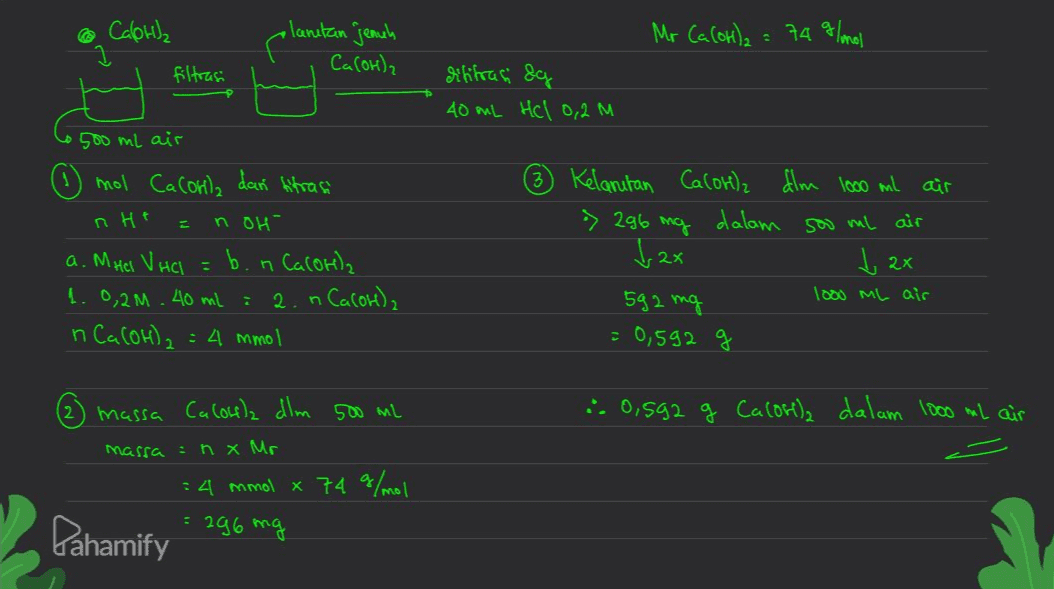 Ca(OH)₂
larutan jenuh
Ca(OH)₂
Mr Ca(OH)₂ = 74 g/mol
filtrasi
dititrasi dg
40 mL HCl 0,2 M
500 mL air
① mol Ca(OH)₂ dari titrasi
n H⁺ = n OH⁻
a. M HCl V HCl = b. n Ca(OH)₂
1. 0,2 M . 40 ml = 2. n Ca(OH)₂
n Ca(OH)₂ = 4 mmol
② massa Ca(OH)₂ dlm 500 mL
massa = n x Mr
= 4 mmol x 74 g/mol
= 296 mg
③ Kelarutan Ca(OH)₂ dlm 1000 ml air
⇒ 296 mg dalam 500 mL air
↓ 2x ↓ 2x
592 mg 1000 mL air
= 0,592 g
∴ 0,592 g Ca(OH)₂ dalam 1000 mL air
Pahamify